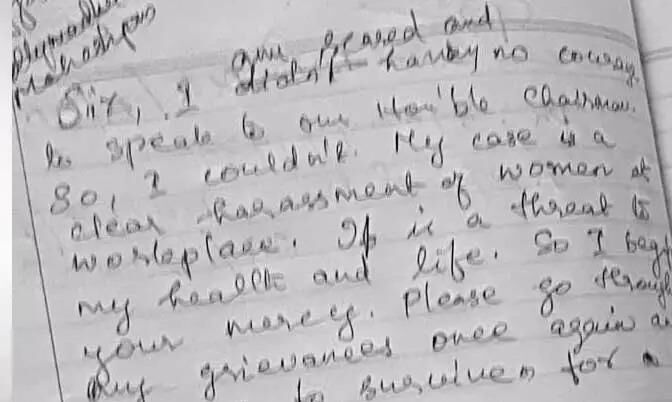 Sir, I am scared and
didn't having no courag
to speak to our Hon'ble Chairman.
So, I couldn't. My case is a
clear harassment of women at
workplace. It is a threat to
my health and life. So I beg
your mercy. please go through
my grievances once again a
to for